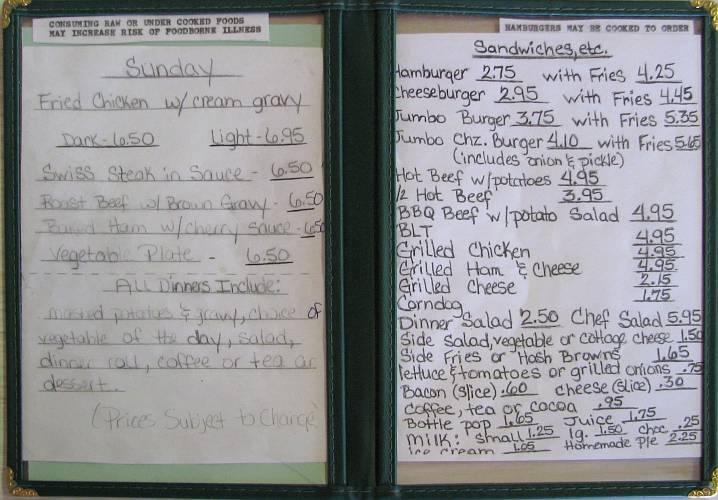 CONSUMING RAW OR UNDER COOKED FOODS
MAY INCREASE RISK OF FOODBORNE ILLNESS
Sunday
Fried Chicken w/cream gravy
Dark - 6.50 Light - 6.95
Swiss Steak in Sauce - 6.50
Roast Beef w/ Brown Gravy - 6.50
Baked Ham w/cherry sauce - 6.50
Vegetable Plate - 6.50
All Dinners Include:
mashed potatoes & gravy, choice of
vegetable of the day, salad,
dinner roll, coffee or tea or
dessert.
(Prices Subject to Change
HAMBURGERS MAY BE COOKED TO ORDER
Sandwiches, etc.
Hamburger 2.75 with Fries 4.25
Cheeseburger 2.95 with Fries 4.45
Jumbo Burger 3.75 with Fries 5.35
Jumbo Chz. Burger 4.10 with Fries 5.65
(includes onion & pickle)
Hot Beef w/potatoes 4.95
1/2 Hot Beef 3.95
BBQ Beef w/potato Salad 4.95
BLT 4.95
Grilled Chicken 4.95
Grilled Ham & Cheese 4.95
Grilled Cheese 2.15
Corndog 1.75
Dinner Salad 2.50 Chef Salad 5.95
Side Salad, vegetable or cottage cheese 1.50
Side Fries or Hash Browns 1.65
lettuce & tomatoes or grilled onions .75
Bacon (slice) .60 cheese (slice) .30
coffee, tea or cocoa .95
Bottle pop 1.65 Juice 1.75
milk: small 1.25 lg. 1.50 choc .25
ice cream 1.05 Homemade Pie 2.25